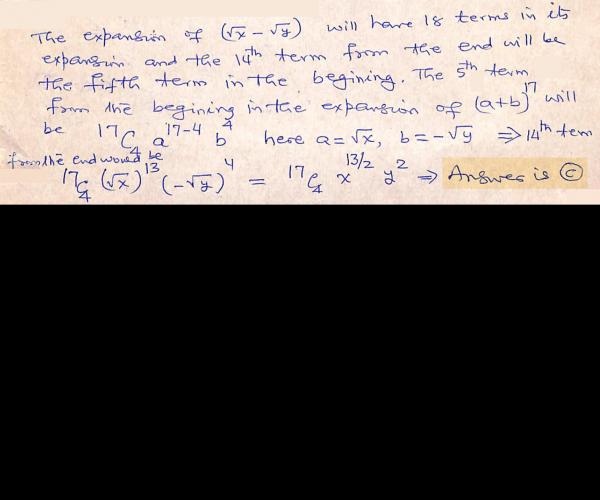 The expansion of (√x − √y) will have 18 terms in its
expansion and the 14th term from the end will be
the fifth term in the begining. The 5th term
from the begining in the expansion of (a+b)^17 will
be 17C4 a^17-4 b^4 here a = √x, b = −√y ⇒ 14th term
from the end would be
17C4 (√x)^13 (−√y)^4 = 17C4 x^13/2 y^2 ⇒ Answer is Ⓒ